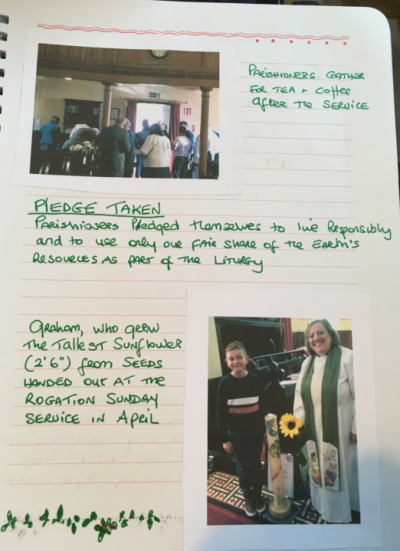 PARISHIONERS GATHER
FOR TEA + COFFEE
AFTER THE SERVICE
PLEDGE TAKEN
PARISHIONERS PLEDGED THEMSELVES TO LIVE RESPONSIBLY
AND TO USE ONLY OUR FAIR SHARE OF THE EARTH'S
RESOURCES AS PART OF THE LITURGY
GRAHAM, WHO GREW
THE TALLEST SUNFLOWER
(2'6") FROM SEEDS
HANDED OUT AT THE
ROGATION SUNDAY
SERVICE IN APRIL